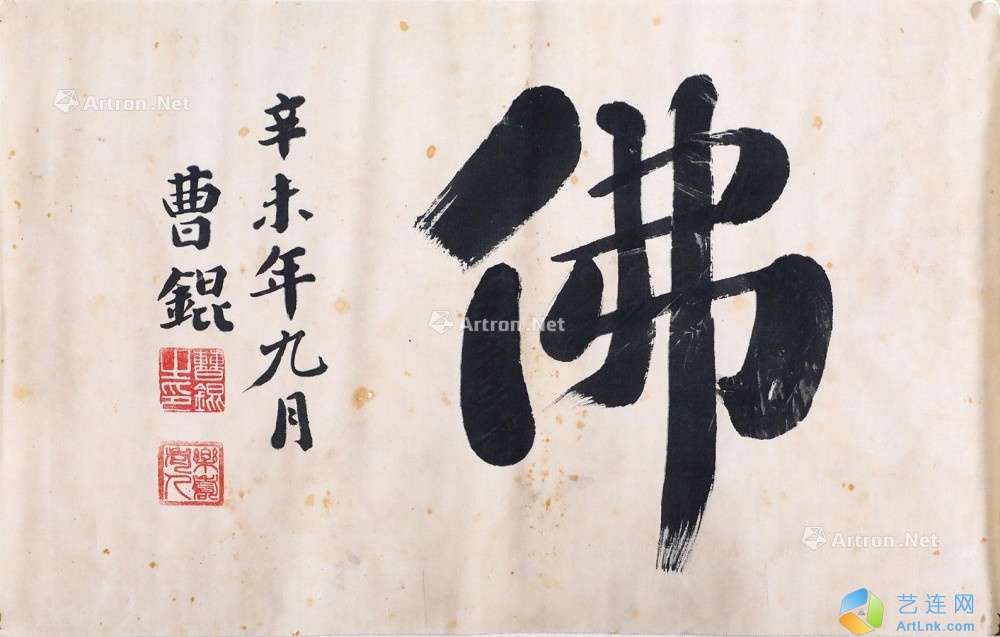 佛
辛未年九月
曹錕
曹錕之印
樂壽老人
Artron.Net
Artron.Net
Artron.Net
艺连网
ArtLnk.com